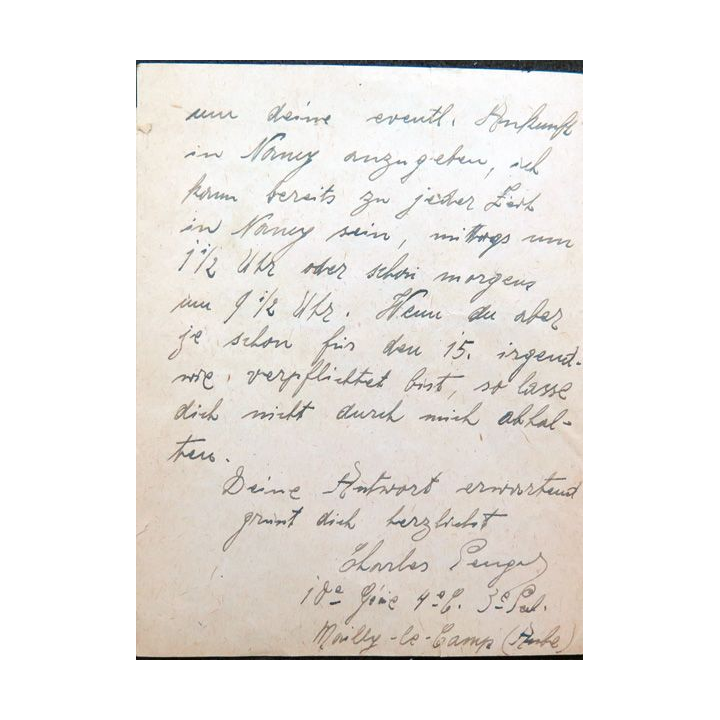 um deine eventl. Ankunft
in Nancy anzugeben, ich
kann bereits zu jeder Zeit
in Nancy sein, mittags um
1 1/2 Uhr oder schon morgens
um 9 1/2 Uhr. Wenn du aber
je schon für den 15. irgend-
wie verpflichtet bist, so lasse
dich nicht durch mich abhal-
ten.
Deine Antwort erwartend
grüsst dich herzlichst
Charles
10e Génie 4e C. 3e
Mailly-le-Camp (Aube)